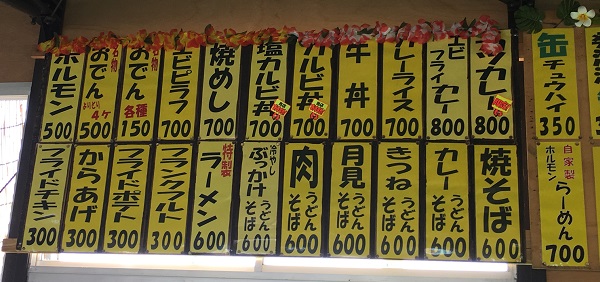 ホルモン 500
名物 おでん よりどり 4ケ 500
名物 おでん 各種 150
エビピラフ 700
焼めし 700
塩カルビ丼 700
カルビ丼 700
牛丼 700
カレーライス 700
エビフライカレー 800
カツカレー 800
缶チュウハイ 350
フライドチキン 300
からあげ 300
フライドポテト 300
フランクフルト 300
特製 ラーメン 600
冷やし ぶっかけ うどん そば 600
肉 うどん そば 600
月見 うどん そば 600
きつね うどん そば 600
カレー うどん そば 600
焼そば 600
自家製 ホルモン らーめん 700